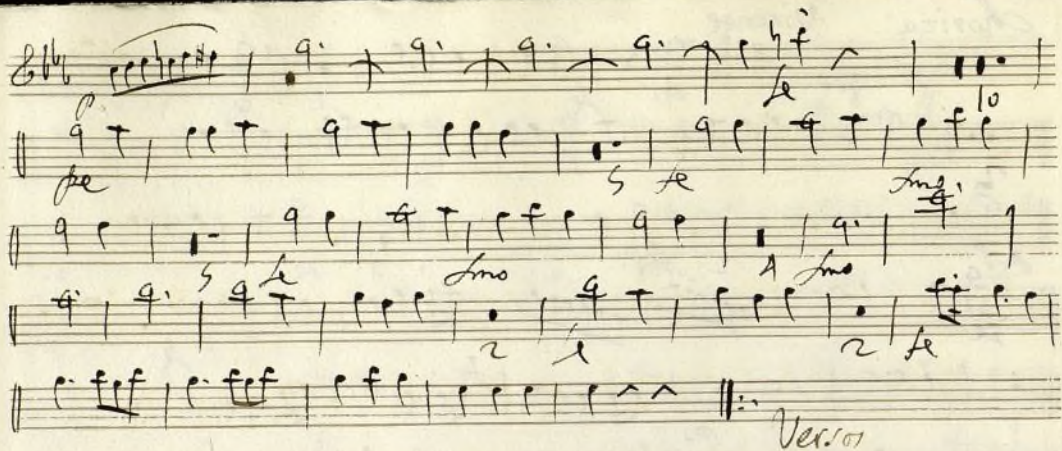 p fe
10
pe 5 fe fmo.
5 fe fmo 4 fmo
2 f 2 fe
Versos